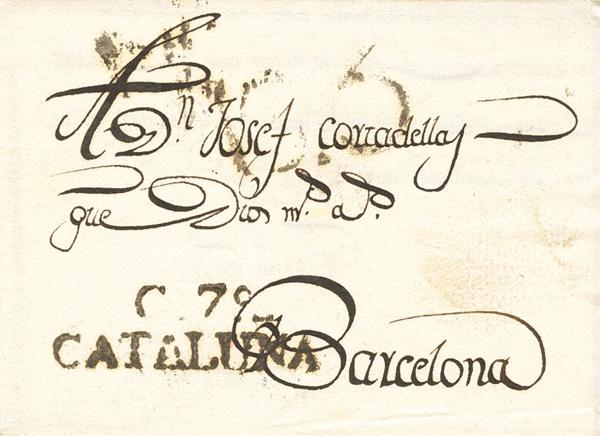 A Dn Josef Corradellas
que Dios ms. as.
C 79
CATALUÑA
Barcelona